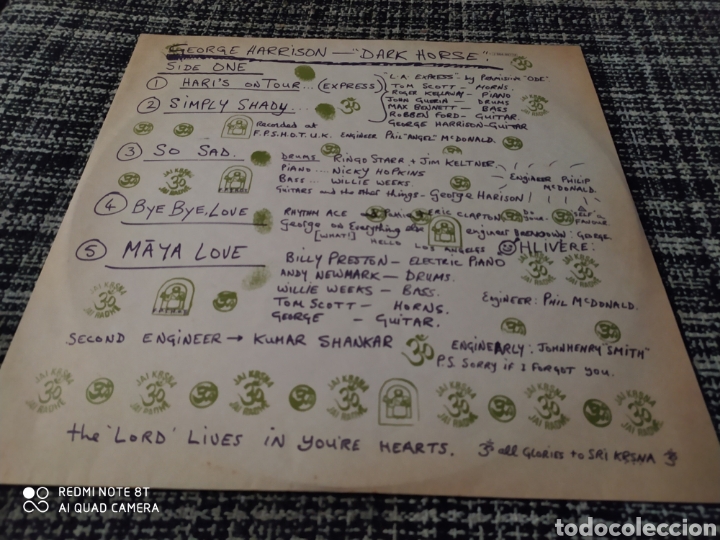 GEORGE HARRISON — "DARK HORSE".
SIDE ONE
① HARI'S ON TOUR... (EXPRESS)
"L.A. EXPRESS" - by
TOM SCOTT — HORNS.
ROGER KELLAWAY — PIANO
JOHN GUERIN — DRUMS
MAX BENNETT — BASS
ROBBEN FORD — GUITAR.
GEORGE HARRISON - GUITAR
② SIMPLY SHADY...
Recorded at
F.P.S.H.O.T. U.K. ENGINEER PHIL "ANGEL" McDONALD.
③ SO SAD.
DRUMS: RINGO STARR + JIM KELTNER
PIANO... NICKY HOPKINS
BASS... WILLIE WEEKS.
GUITARS and the other things - GEORGE HARISON
ENGINEER PHILIP McDONALD.
④ BYE BYE, LOVE
RHYTHM ACE ERIC CLAPTON
George on Everything else
[WHAT!]
HELLO LOS ANGELES
OHLIVERE:
⑤ MĀYA LOVE
BILLY PRESTON — ELECTRIC PIANO
ANDY NEWMARK — DRUMS.
WILLIE WEEKS — BASS.
TOM SCOTT — HORNS.
GEORGE — GUITAR.
Engineer: PHIL McDONALD.
SECOND ENGINEER → KUMAR SHANKAR
ENGINEARLY: JOHNHENRY "SMITH"
P.S. SORRY IF I FORGOT YOU.
JAI KRSNA ॐ JAI RADHE
the 'LORD' LIVES IN YOU'RE HEARTS.
ॐ all GLORIES to SRI KRSNA ॐ
REDMI NOTE 8T
AI QUAD CAMERA
todocoleccion